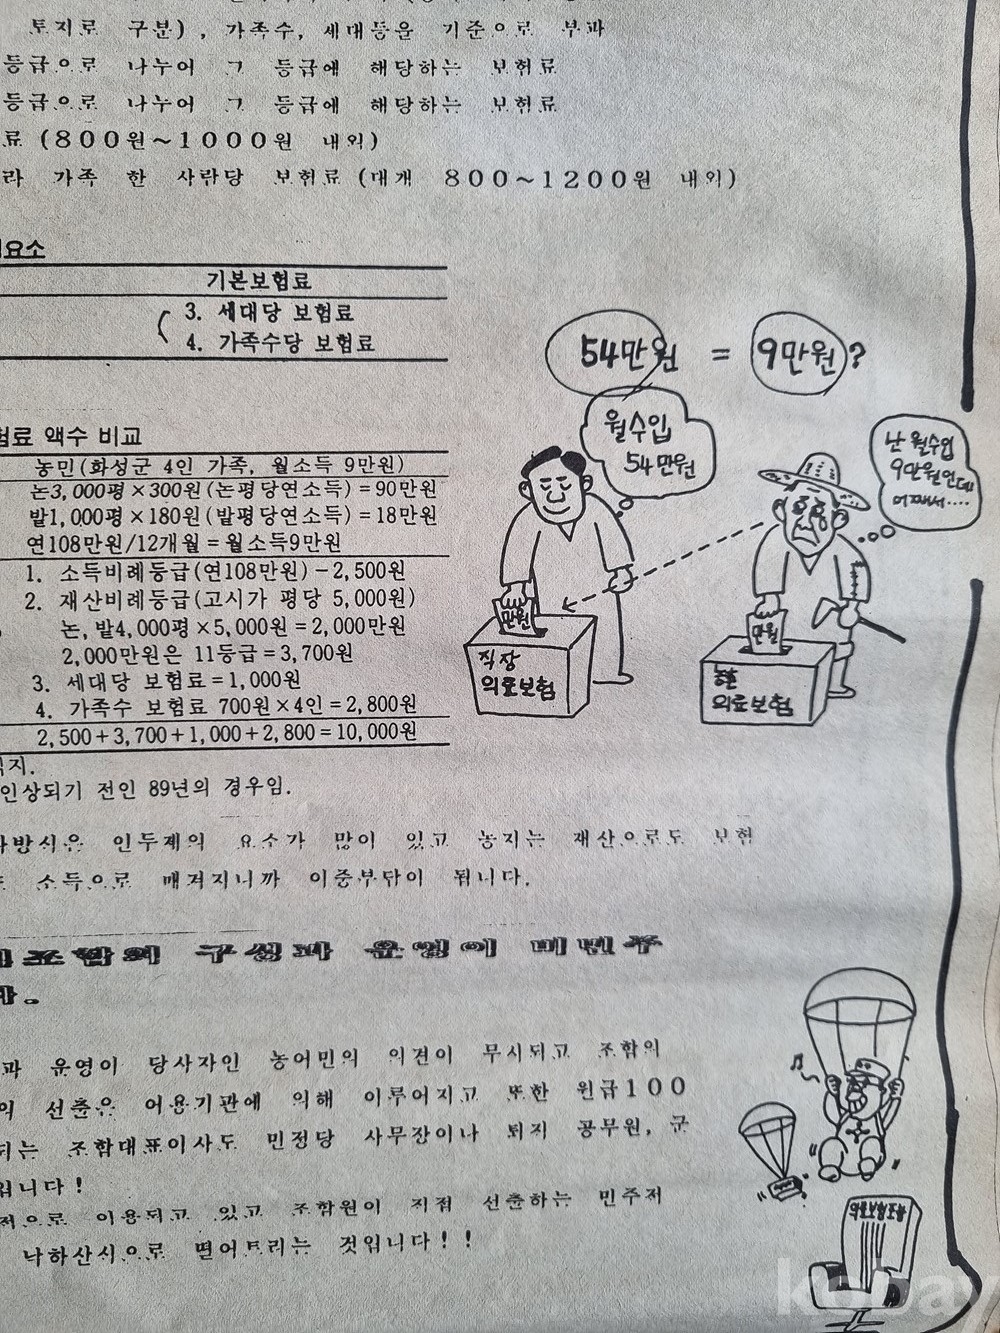 토지로 구분), 가족수, 세대등을 기준으로 부과
등급으로 나누어 그 등급에 해당하는 보험료
등급으로 나누어 그 등급에 해당하는 보험료
료 (800원~1000원 내외)
라 가족 한 사람당 보험료 (대개 800~1200원 내외)
요소
기본보험료
3. 세대당 보험료
4. 가족수당 보험료
54만원 = 9만원?
월수입
54만원
난 월수입
9만원인데
어째서....
만원
직장
의료보험
만원
농촌
의료보험
험료 액수 비교
농민(화성군 4인 가족, 월소득 9만원)
논3,000평×300원(논평당연소득)=90만원
밭1,000평×180원(밭평당연소득)=18만원
연108만원/12개월=월소득9만원
1. 소득비례등급(연108만원)-2,500원
2. 재산비례등급(고시가 평당 5,000원)
논, 밭4,000평×5,000원=2,000만원
2,000만원은 11등급=3,700원
3. 세대당 보험료=1,000원
4. 가족수 보험료 700원×4인=2,800원
2,500+3,700+1,000+2,800=10,000원
지.
인상되기 전인 89년의 경우임.
방식은 인두제의 요소가 많이 있고 농지는 재산으로도 보험
소득으로 매겨지니까 이중부담이 됩니다.
조합의 구성과 운영이 비민주
다.
과 운영이 당사자인 농어민의 의견이 무시되고 조합의
의 선출은 어용기관에 의해 이루어지고 또한 월급100
되는 조합대표이사도 민정당 사무장이나 퇴직 공무원, 군
입니다!
적으로 이용되고 있고 조합원이 직접 선출하는 민주적
낙하산식으로 떨어뜨리는 것입니다!!
의료보험조합
kobay